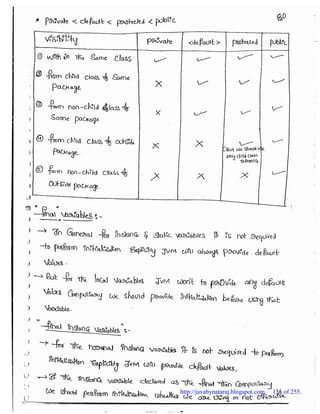 * private < default < protected < public
80
visibility private <default> protected public
① with in the Same class ✓ ✓ ✓ ✓
② from child class of Same package ✗ ✓ ✓ ✓
③ from non-child class of Same package ✗ ✓ ✓ ✓
④ from child class of outside package. ✗ ✗ ✓ ✓
But we should use only child class reference
⑤ from non-child class of outside package. ✗ ✗ ✗ ✓
"final" variables :-
→ In General for instance & static variables it is not required
to perform initialization Explicitly JVM will always provide default
values.
→ But for the local variables JVM won't to provide any default
values Compulsory we should provide initialization before using that
Variable.
"final instance variables" :-
→ for the normal instance variables it is not required to perform
initialization Explicitly JVM will provide default values.
→ If the instance variable declared as the final then Compulsory
we should perform initialization whether we are using or not otherwise
http://javabynataraj.blogspot.com 156 of 255.